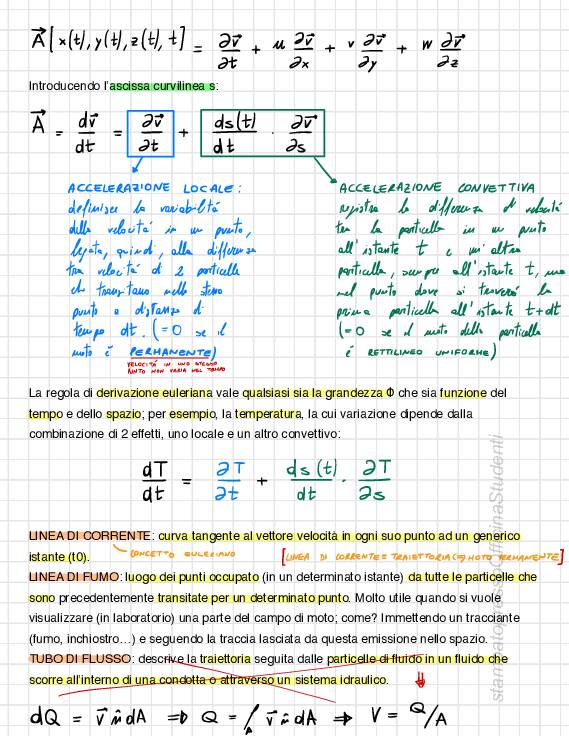 A⃗ [x(t), y(t), z(t), t] = ∂v⃗/∂t + u ∂v⃗/∂x + v ∂v⃗/∂y + w ∂v⃗/∂z
Introducendo l'ascissa curvilinea s:
A⃗ = dv⃗/dt = ∂v⃗/∂t + ds(t)/dt · ∂v⃗/∂s
ACCELERAZIONE LOCALE:
definisce la variabilità
della velocità in un punto,
legata, quindi, alla differenza
tra velocità di 2 particelle
che transitano nello stesso
punto a distanza di
tempo dt. (=0 se il
moto è PERMANENTE)
VELOCITÀ IN UNO STESSO
PUNTO NON VARIA NEL TEMPO
ACCELERAZIONE CONVETTIVA
registra la differenza di velocità
tra la particella in un punto
all'istante t e un'altra
particella, sempre all'istante t, ma
nel punto dove si troverà la
prima particella all'istante t+dt
(=0 se il moto della particella
è RETTILINEO UNIFORME)
La regola di derivazione euleriana vale qualsiasi sia la grandezza Φ che sia funzione del
tempo e dello spazio; per esempio, la temperatura, la cui variazione dipende dalla
combinazione di 2 effetti, uno locale e un altro convettivo:
dT/dt = ∂T/∂t + ds(t)/dt · ∂T/∂s
LINEA DI CORRENTE: curva tangente al vettore velocità in ogni suo punto ad un generico
istante (t0).
CONCETTO EULERIANO
[LINEA DI CORRENTE = TRAIETTORIA (=) MOTO PERMANENTE]
LINEA DI FUMO: luogo dei punti occupato (in un determinato istante) da tutte le particelle che
sono precedentemente transitate per un determinato punto. Molto utile quando si vuole
visualizzare (in laboratorio) una parte del campo di moto; come? Immettendo un tracciante
(fumo, inchiostro…) e seguendo la traccia lasciata da questa emissione nello spazio.
TUBO DI FLUSSO: descrive la traiettoria seguita dalle particelle di fluido in un fluido che
scorre all'interno di una condotta o attraverso un sistema idraulico.
dQ = v⃗ n̂ dA ⇒ Q = ∫A v⃗ n̂ dA ⇒ V = Q/A
stampatopressoOfficinaStudenti